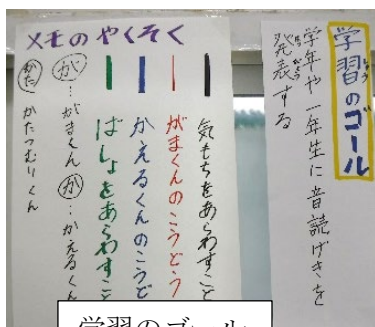 学習のゴール
学年や一年生に音読げきを
発表する
メモのやくそく
気もちをあらわすこと
がまくんのこうどう
かえるくんのこうど
ばしょをあらわすこと
が…がまくん か…かえるくん
かた かたつむりくん
学習のゴール